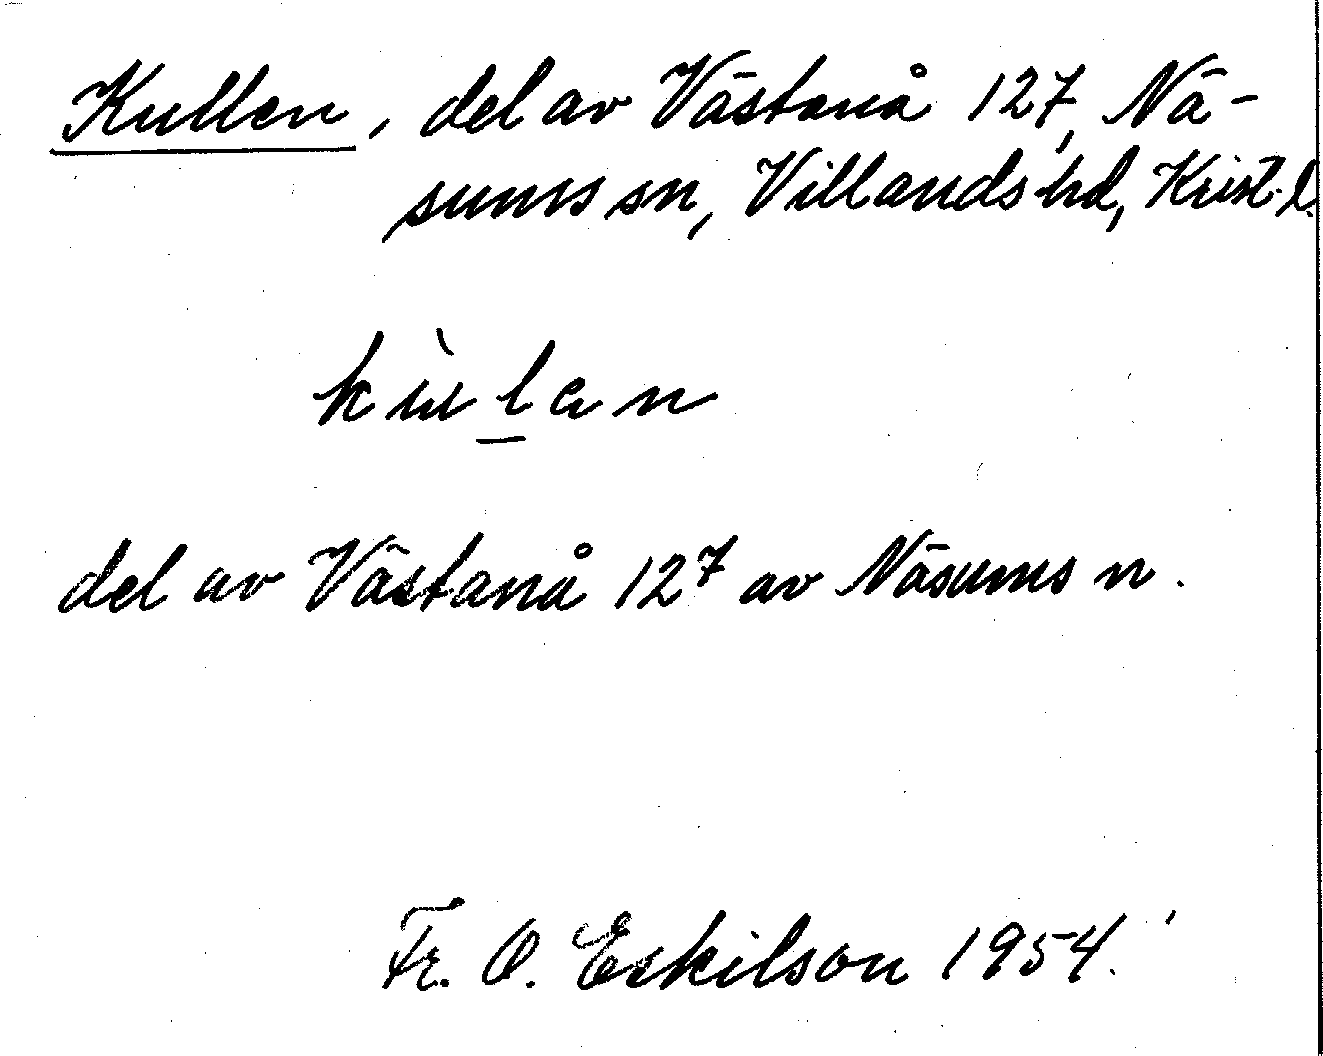 Kullen, del av Västanå 127, Nä-
sums sn, Villands hd, Krist. l.
kùl̲an
del av Västanå 127 av Näsums n.
Fr. O. Eskilson 1954.